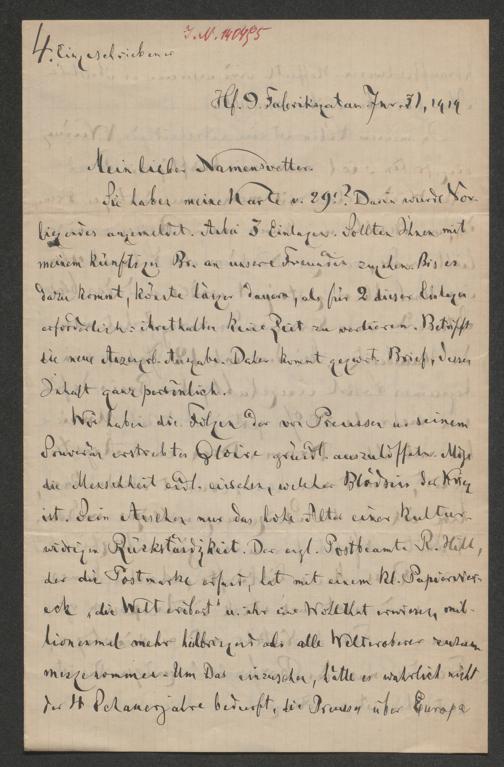 J.N. 140495
4. Eingeschrieben
Hf. d. Jnr. 31, 1919
Mein lieber Namensvetter.
Sie haben meine Karte v. 29.? Darin wurde Vor-
liegendes angemeldet. Anbei 3 Einlagen. Sollten Ihnen mit
meinem künftigen Br. an unsere Freundin zugehen. Bis es
dazu kommt, könnte länger dauern, als für 2 dieser Einlagen
erforderlich: ihrethalben keine Zeit zu verlieren. Betrifft
die neue Ausgabe. Daher kommt gegenw. Brief, dessen
Inhalt ganz persönlich.
Wir haben die Folgen der von Preussen u. seinem
Souverän erstrebten Gloire gründl. auszulöffeln. Möge
die Menschheit endl. einsehen, welcher Blödsinn der Krieg
ist. Sein Ansehen nur das hohe Alter einer kultur-
widrigen Rückständigkeit. Der engl. Postbeamte R. Hill,
der die Postmarke erfand, hat mit einem kl. Papierviereck
"die Welt erobert" u. ihr eine Wohlthat erwiesen, mil-
lionenmal mehr als alle Welteroberer zusam
mengenommen. Um Das einzusehen, hätte es wahrlich nicht
der 4 Schauerjahre bedurft, die Preussen über Europa